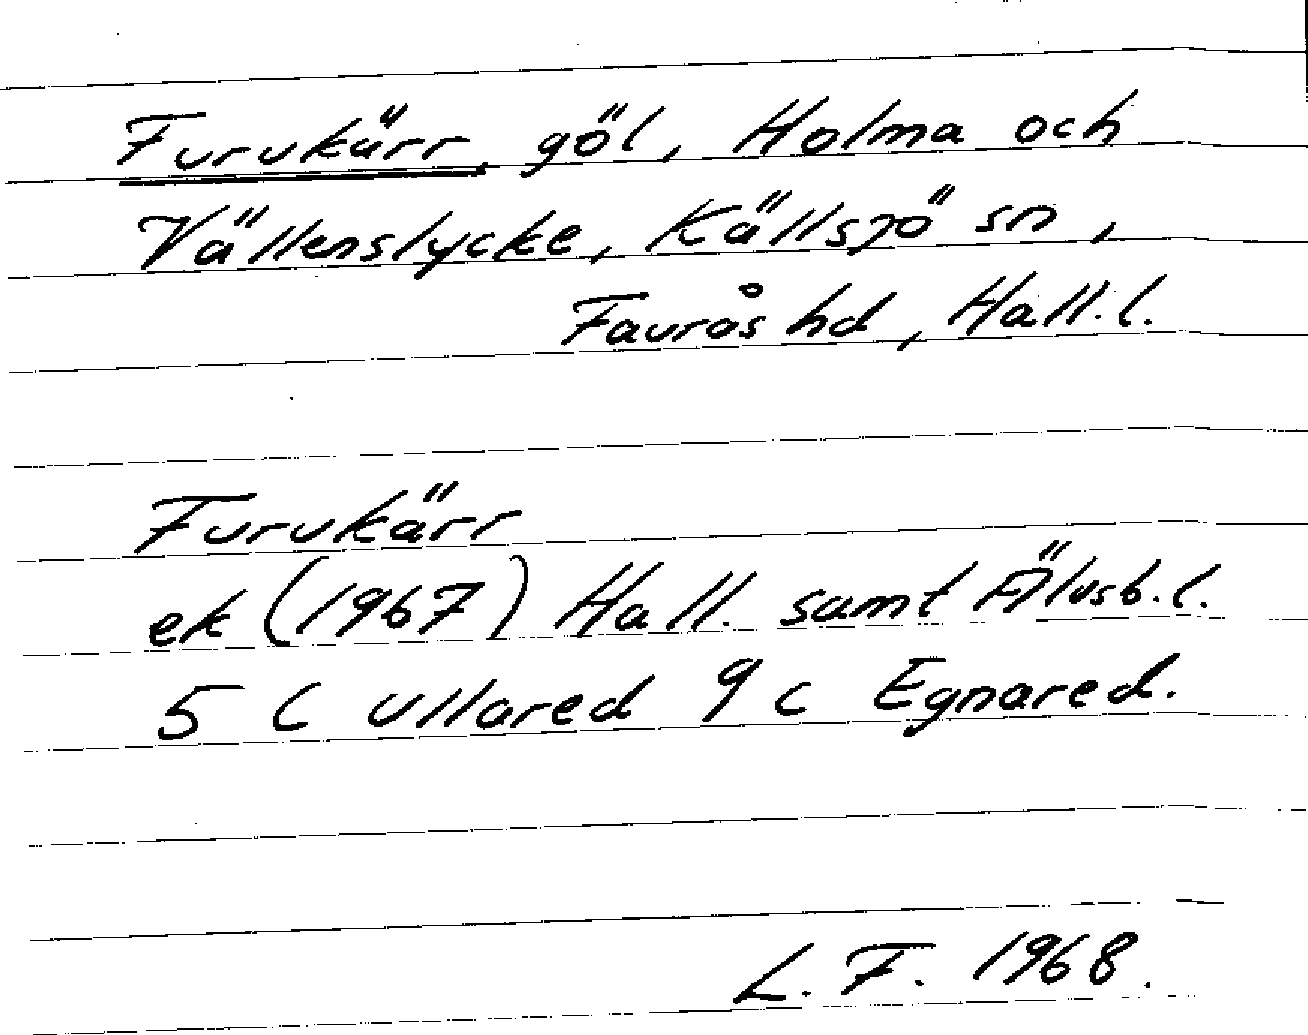 Furukärr, göl, Holma och
Vällenslycke, Källsjö sn,
Faurås hd, Hall. l.
Furukärr
ek (1967) Hall. samt Älvsb. l.
5 C Ullared 9 c Egnared.
L. F. 1968.